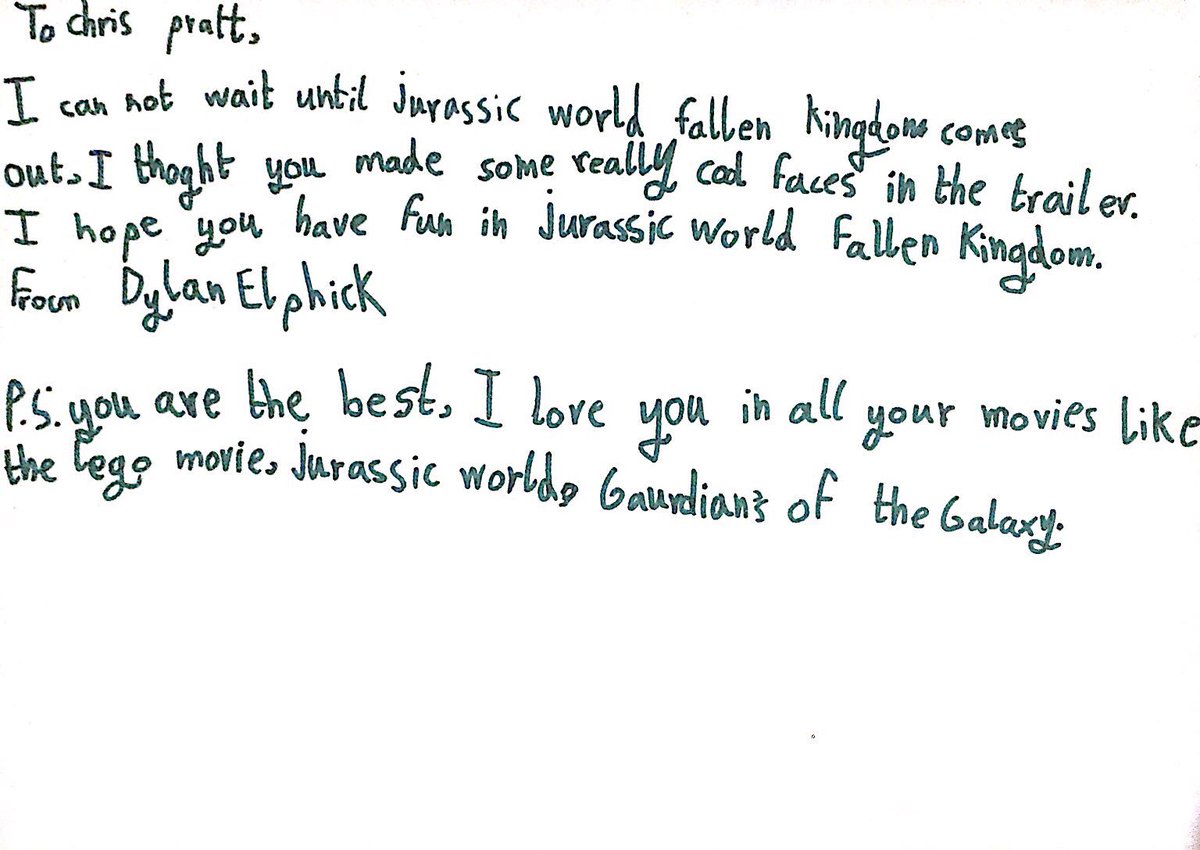 To chris pratt,
I can not wait until jurassic world fallen kingdom comes
out, I thoght you made some really cool faces in the trailer.
I hope you have fun in jurassic world fallen kingdom.
From Dylan Elphick
P.S. you are the best, I love you in all your movies like
the lego movie, jurassic world, Gaurdians of the Galaxy.